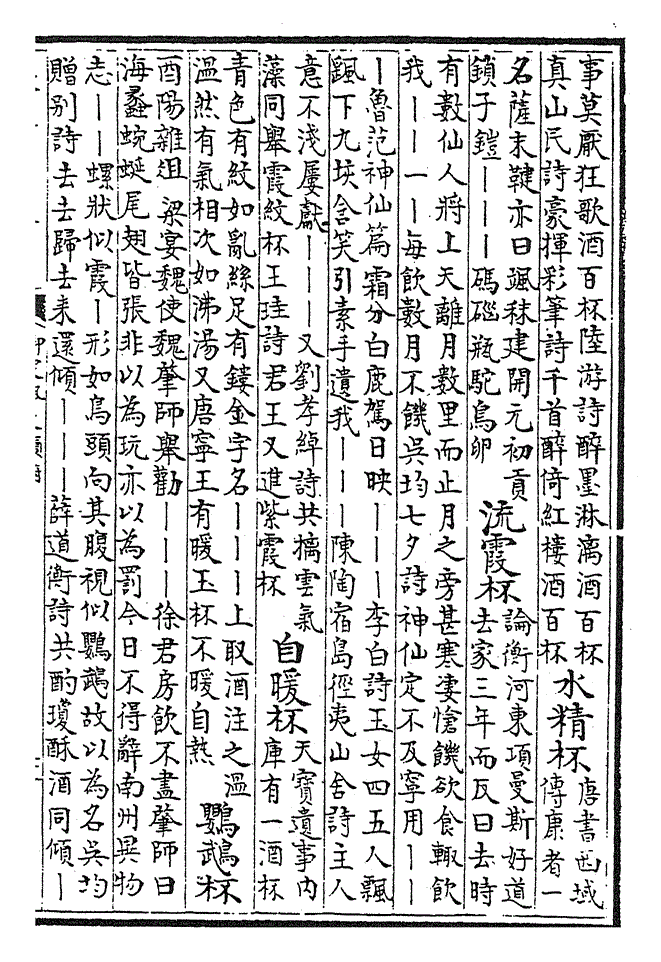 事莫厭狂歌酒百杯陸游詩醉墨淋漓酒百杯
真山民詩豪揮彩筆詩千首醉倚紅樓酒百杯
水精杯
唐書西域
傳康者一
名薩末鞬亦曰颯秣建開元初貢
鎖子鎧———碼碯瓶駝鳥卵
流霞杯
論衡河東項曼斯好道
去家三年而反曰去時
有數仙人將上天離月數里而止月之旁甚寒淒愴饑欲食輒飲
我——一—每飲數月不饑吳均七夕詩神仙定不及寧用——
—魯范神仙篇霜分白鹿駕日映———李白詩玉女四五人飄
颻下九垓含笑引素手遺我———陳陶宿島徑夷山舍詩主人
意不淺屢獻———又劉孝綽詩共摛雲氣
藻同舉霞紋杯王珪詩君王又進紫霞杯
自暖杯
天寶遺事内
庫有一酒杯
青色有紋如亂絲足有鏤金字名———上取酒注之溫
溫然有氣相次如沸湯又唐寧王有暖玉杯不暖自熱
鸚鵡杯
酉陽雜俎 梁宴魏使魏肇師舉勸———徐君房飲不盡肇師曰
海蠡蜿蜒尾翅皆張非以為玩亦以為罰今日不得辭南州異物
志——螺狀似霞—形如鳥頭向其腹視似鸚鵡故以為名吳均
贈別詩去去歸去来還傾———薛道衡詩共酌瓊酥酒同傾—